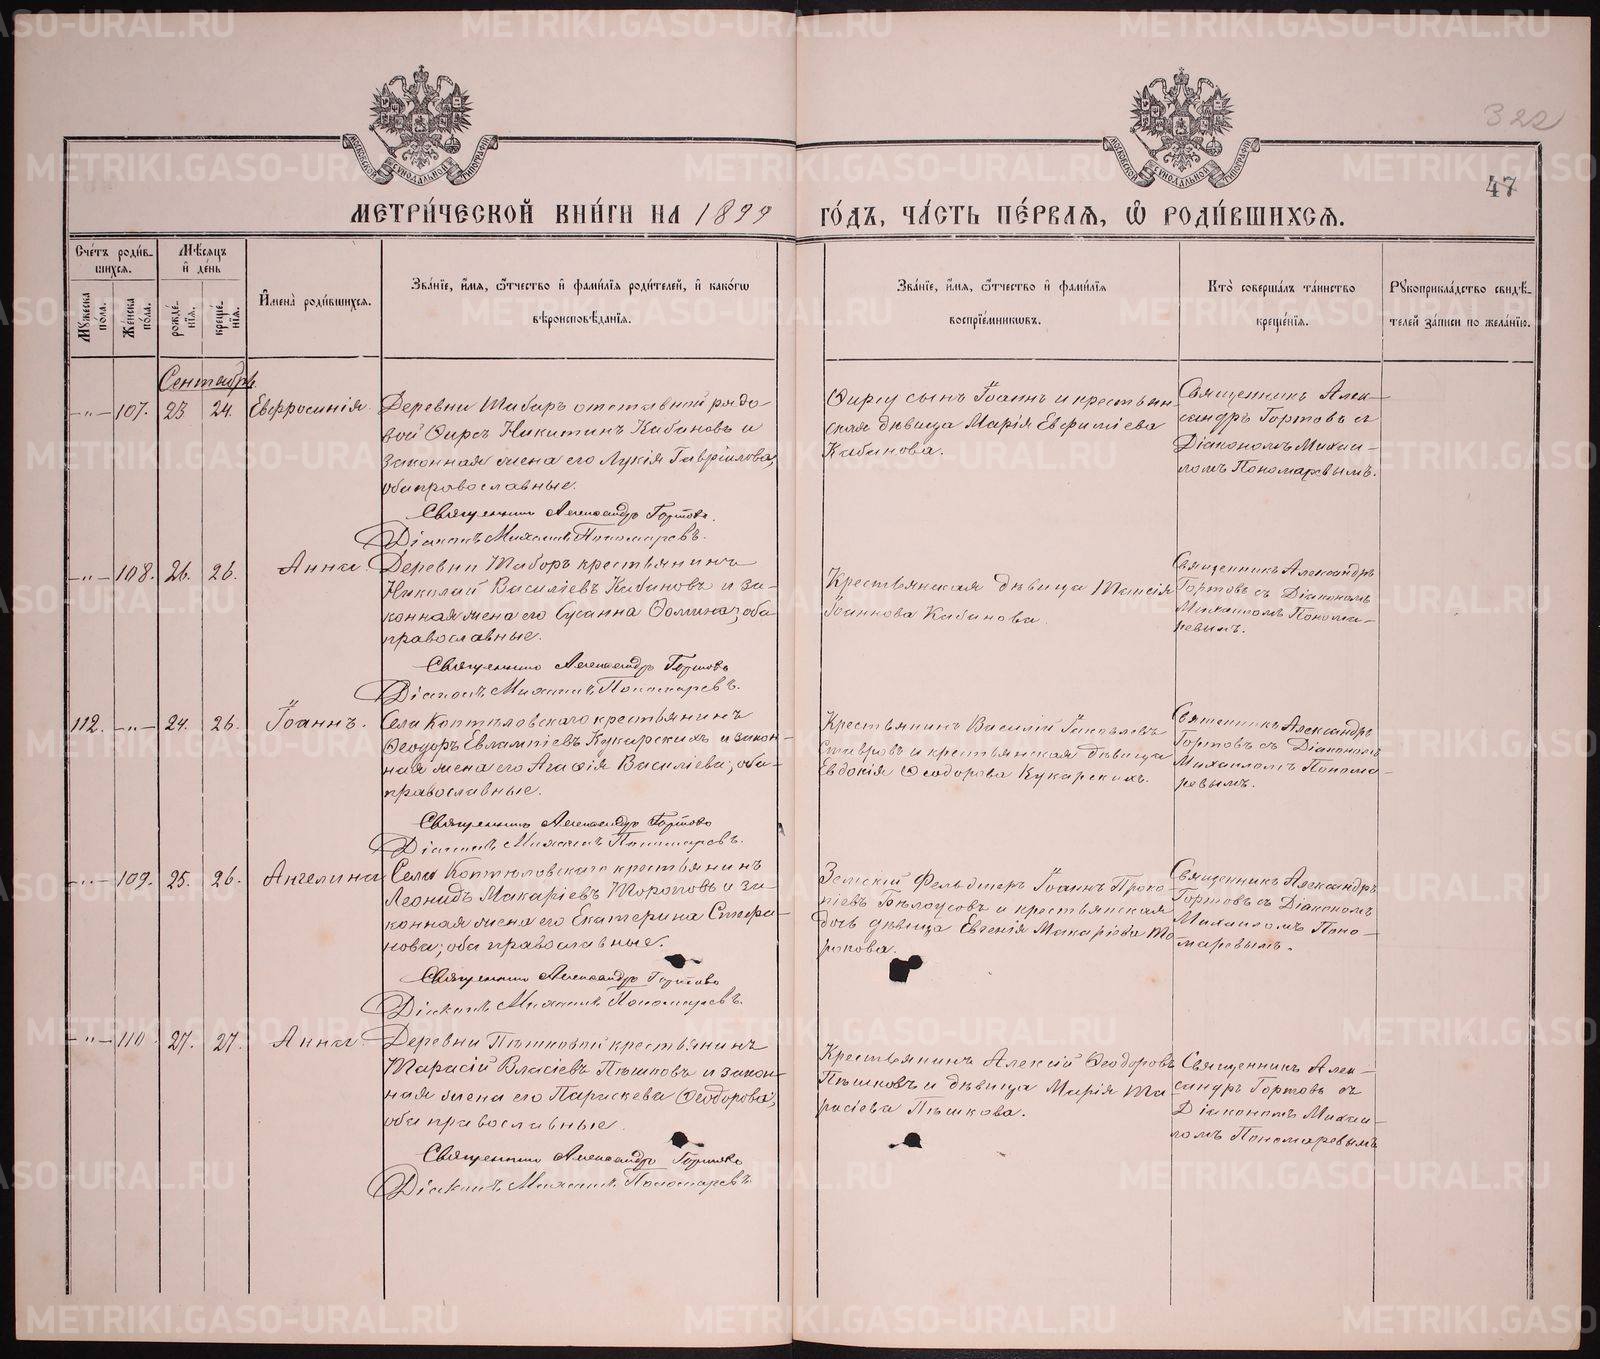 322
47
МЕТРИ́ЧЕСКОЙ КНИ́ГИ НА 1899 ГО́ДЪ, ЧА́СТЬ ПЕ́РВАЯ, Ѡ РОДИ́ВШИХСЯ.
Сче́тъ роди́в-
шихся.
Мѣ́сяцъ
и҆ де́нь
Мꙋжеска по́ла.
Же́нска по́ла.
рожде́-
нїѧ.
креще́-
нїѧ.
И҆мена̀ роди́вшихся.
Зва́нїе, и҆́мя, ѻ҆́тчество и҆ фамилїѧ роди́телей, и҆ како́гѡ
вѣроисповѣ́данїѧ.
Зва́нїе, и҆́мя, ѻ҆́тчество и҆ фами́лїѧ
воспрїе́мникѡвъ.
Кто̀ соверша́лъ та́инство
креще́нїѧ.
Рꙋкоприкла́дство свидѣ́-
телей за́писи по жела́нїю.
Сентябрь.
—"— 107. 23 24. Евфросинія.
Деревни Таборъ отставной рядо-
вой Фирсъ Никитинъ Кабановъ и
законная жена его Лукія Гавріилова,
оба православные.
Священникъ Александръ Гортовъ.
Діаконъ Михаилъ Пономаревъ.
Фирсу сынъ Іоаннъ и крестьян-
ская дѣвица Марія Евфиміева
Кабанова.
Священникъ Алек-
сандръ Гортовъ съ
Діакономъ Михаи-
ломъ Пономаревымъ.
—"— 108. 26. 26. Анна.
Деревни Таборъ крестьянинъ
Николай Василіевъ Кабановъ и за-
конная жена его Сусанна Фомина, оба
православные.
Священникъ Александръ Гортовъ
Діаконъ Михаилъ Пономаревъ.
Крестьянская дѣвица Таисія
Іоаннова Кабанова.
Священникъ Александръ
Гортовъ съ Діакономъ
Михаиломъ Понома-
ревымъ.
112. —"— 24. 26. Іоаннъ.
Села Коптяловскаго крестьянинъ
Ѳеодоръ Евлампіевъ Кукарскихъ и закон-
ная жена его Агафія Василіева, оба
православные.
Священникъ Александръ Гортовъ
Діаконъ Михаилъ Пономаревъ.
Крестьянинъ Василій Іаковлевъ
Ставровъ и крестьянская дѣвица
Евдокія Ѳеодорова Кукарскихъ.
Священникъ Александръ
Гортовъ съ Діакономъ
Михаиломъ Понома-
ревымъ.
—"— 109. 25. 26. Ангелина
Села Коптяловскаго крестьянинъ
Леонидъ Макаріевъ Тороповъ и за-
конная жена его Екатерина Стефа-
нова; оба православные.
Священникъ Александръ Гортовъ
Діаконъ Михаилъ Пономаревъ.
Земскій Фельдшеръ Іоаннъ Проко-
піевъ Бѣлоусовъ и крестьянская
дочь дѣвица Евгенія Макаріева То-
Священникъ Александръ
Гортовъ съ Діакономъ
Михаиломъ Поно-
маревымъ.
—"— 110. 27. 27. Анна
Деревни Пѣшковой крестьянинъ
Тарасій Власіевъ Пѣшковъ и закон-
ная жена его Параскева Ѳеодорова,
оба православные.
Священникъ Александръ Гортовъ
Діаконъ Михаилъ Пономаревъ
Крестьянинъ Алексій Ѳеодоровъ
Пѣшковъ и дѣвица Марія Та-
расіева Пѣшкова.
Священникъ Алек-
сандръ Гортовъ съ
Діакономъ Михаи-
ломъ Пономаревымъ
METRIKI.GASO-URAL.RU